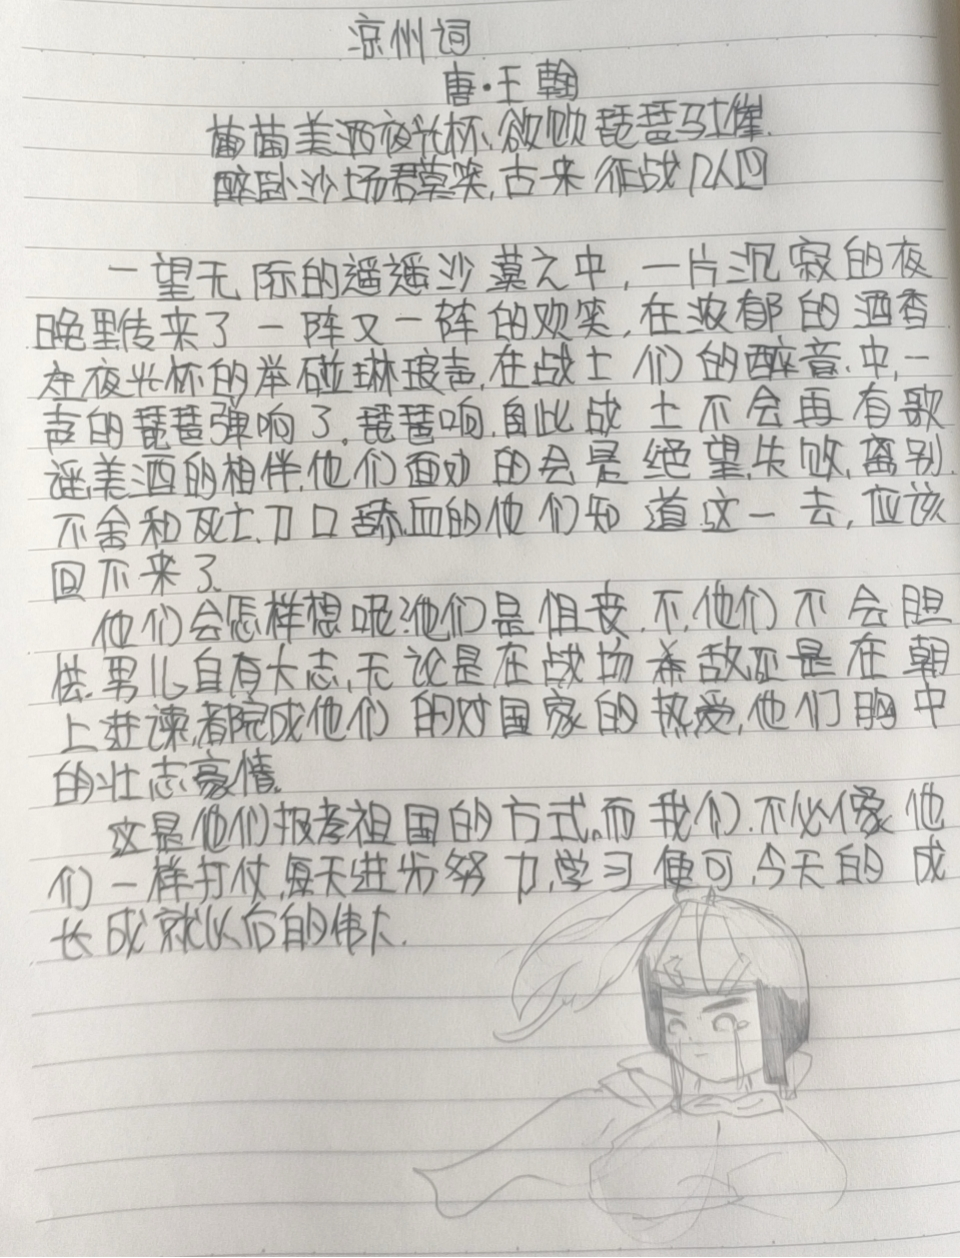 凉州词
唐·王翰
葡萄美酒夜光杯、欲饮琵琶马上催.
醉卧沙场君莫笑,古来征战几人回
一望无际的遥遥沙莫之中,一片沉寂的夜
晚里传来了一阵又一阵的欢笑,在浓郁的酒香
在夜光杯的举碰琳琅声,在战士们的醉音.中,一
声的琵琶弹响了.琵琶响,自此战士不会再有歌
谣,美酒的相伴,他们面对的会是绝望,失败,离别.
不舍和死亡.刀口舔血的他们知道这一去,应该
回不来了.
他们会怎样想呢?他们是怚丧.不,他们不会胆
怯.男儿自有大志,无论是在战场杀敌还是在朝
上进谏,都完成他们的对国家的热爱,他们胸中
的壮志豪情.
这是他们报孝祖国的方式.而我们.不必像他
们一样打仗,每天进步努力,学习便可.今天的成
长成就以后的伟大.